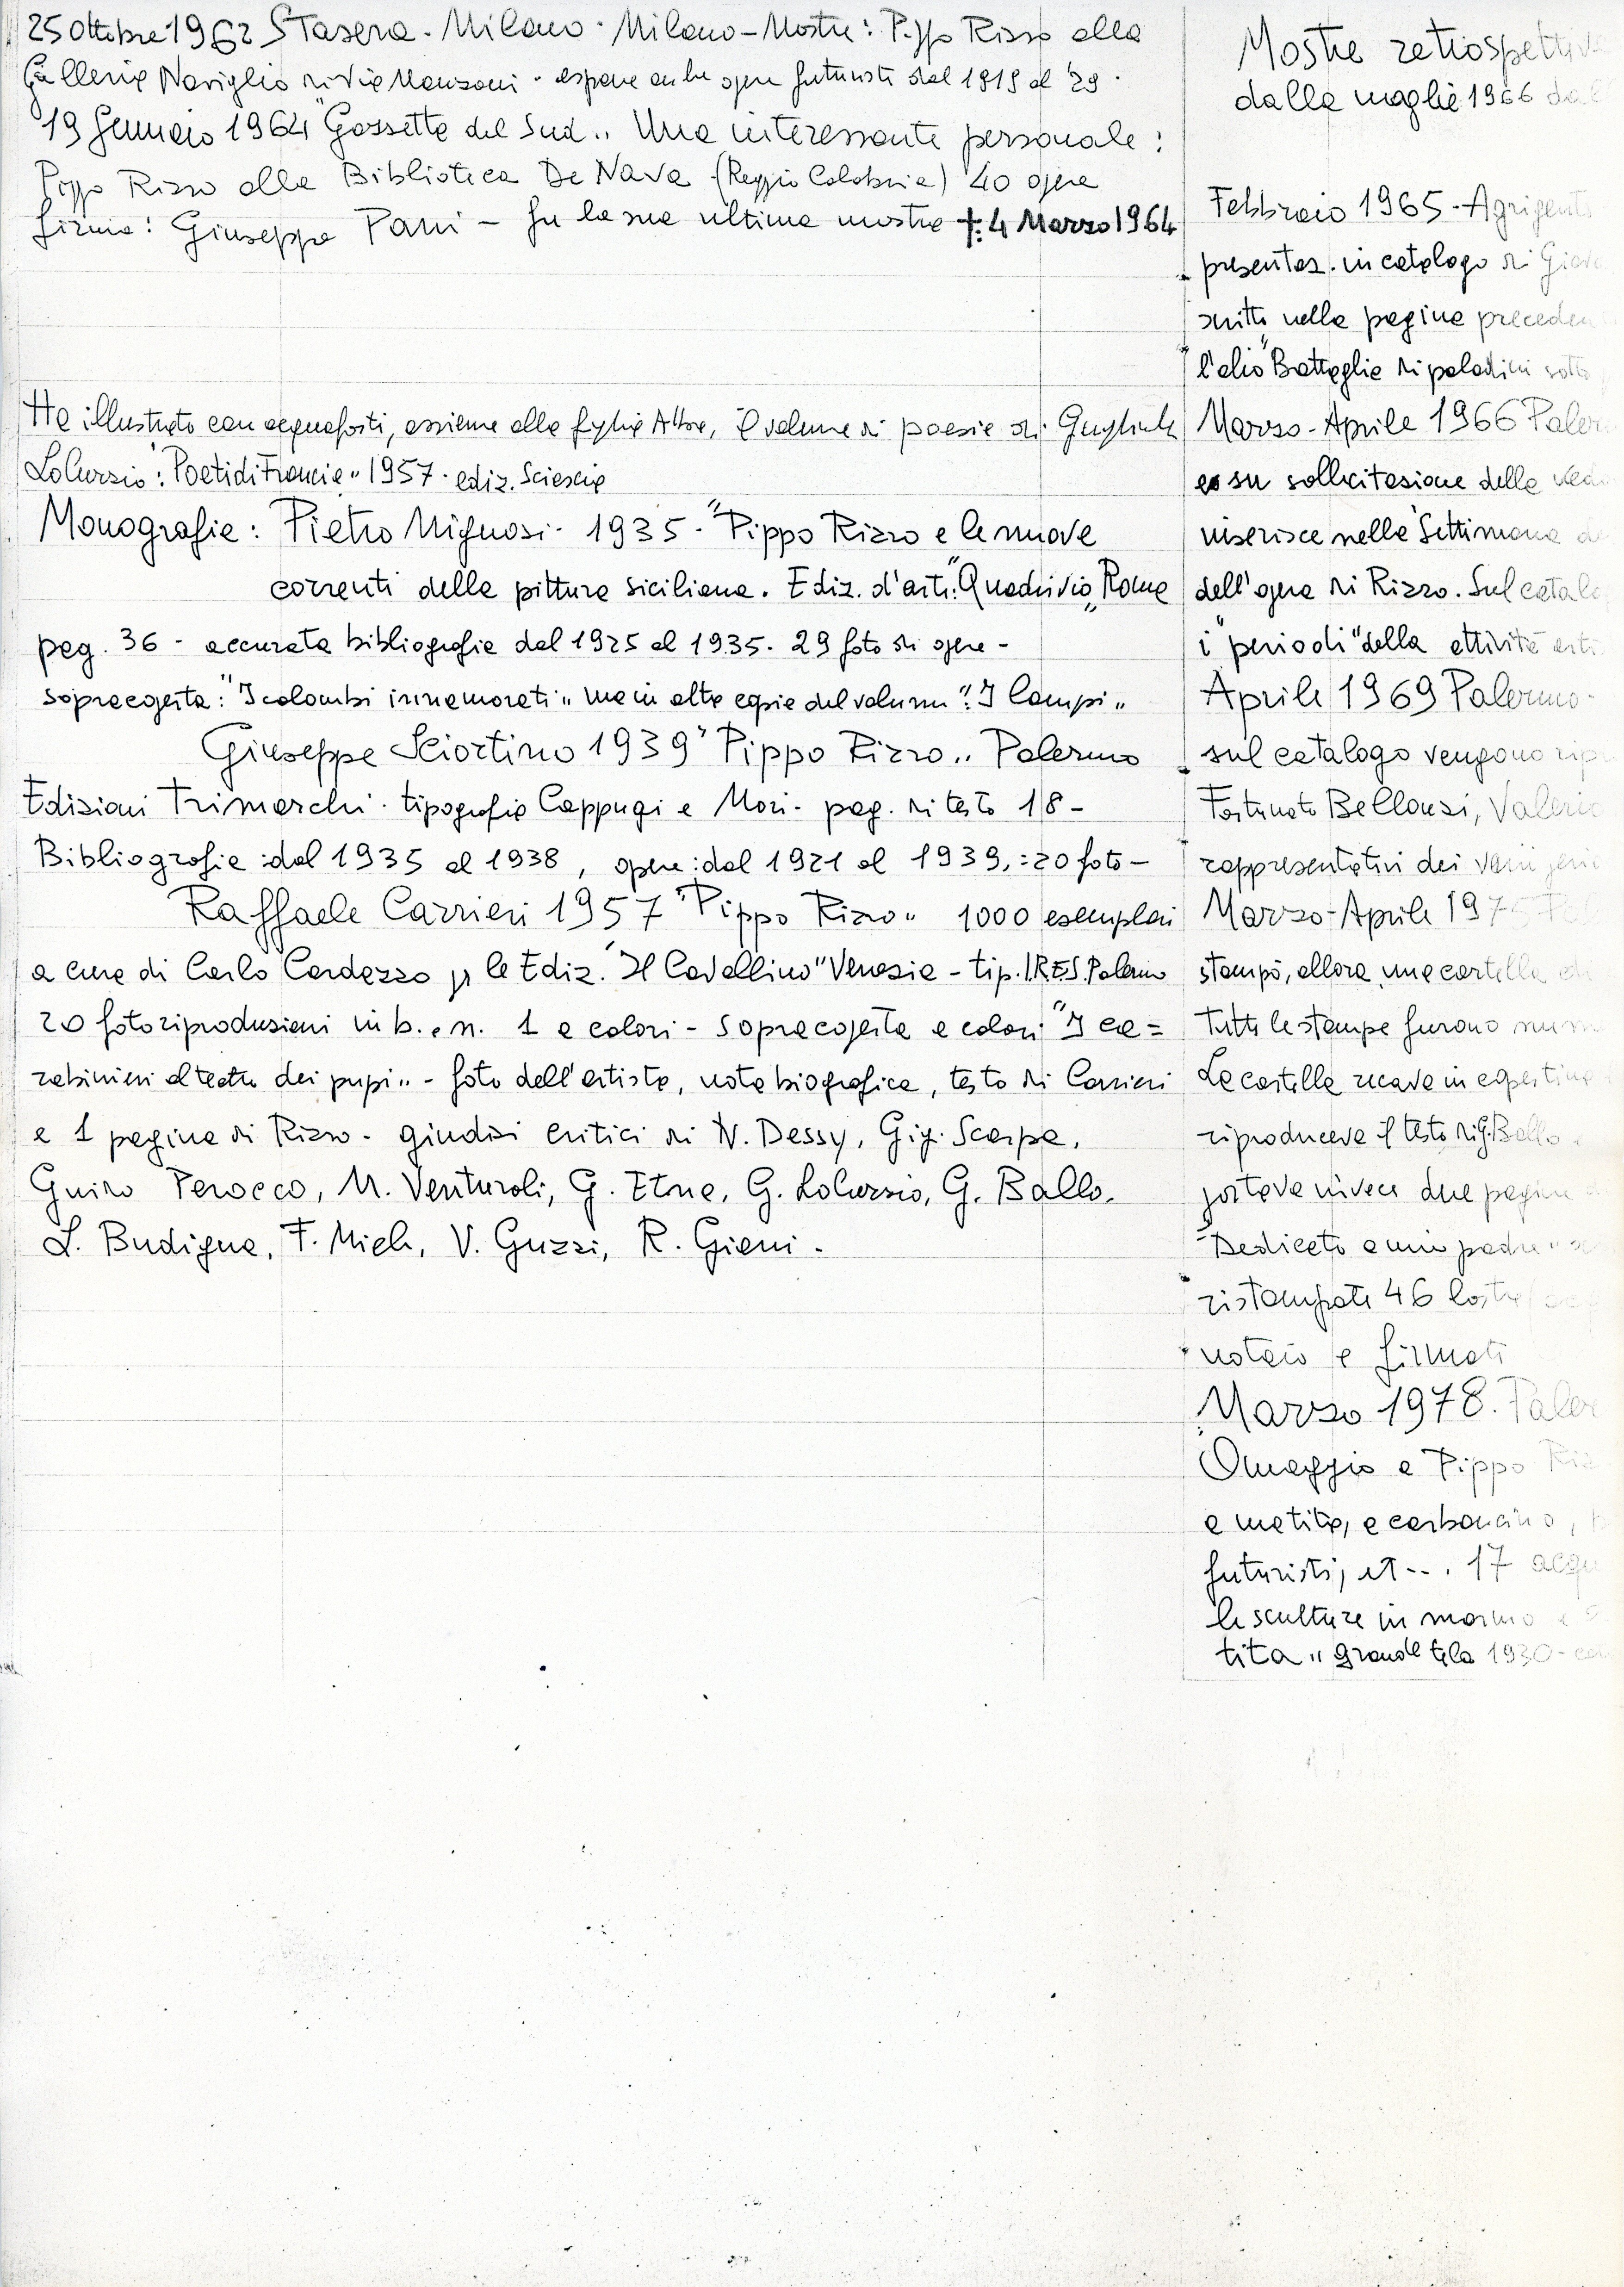 25 Ottobre 1962 Stasera. Milano. Milano - Mostre: Pippo Rizzo alla
Galleria Naviglio di Via Manzoni - espone anche opere futuriste dal 1919 al '29.
19 Gennaio 1964 "Gazzetta del Sud" Una interessante personale:
Pippo Rizzo alla Biblioteca De Nava (Reggio Calabria) 40 opere
firma: Giuseppe Pani - fu la sua ultima mostra †: 4 Marzo 1964
Ha illustrato con acqueforti, assieme alla figlia Alba, il volume di poesie di
Lo Curzio: "Poeti di Francia" 1957. ediz. Sciascia
Monografie: Pietro Mignosi - 1935 - "Pippo Rizzo e le nuove
correnti della pittura siciliana. Ediz. d'arte: "Quadrivio" Roma
pag. 36 - accurata bibliografia dal 1925 al 1935. 29 foto di opere -
sopracoperta: "I colombi innamorati" ma in altre copie del volume: "I Campi"
Giuseppe Sciortino 1939 "Pippo Rizzo" Palermo
Edizioni Trimarchi. tipografia Cappugi e Mori - pag. di testo 18 -
Bibliografia: dal 1935 al 1938, opere: dal 1921 al 1939, : 20 foto -
Raffaele Carrieri 1957 "Pippo Rizzo" 1000 esemplari
a cura di Carlo Cardazzo per le Ediz. "Il Cavallino" Venezia - tip. I.R.E.S. Palermo
20 fotoriproduzioni in b. e n. 1 a colori - sopracoperta a colori "I ca=
rabinieri al teatro dei pupi" - foto dell'artista, nota biografica, testo di Carrieri
e 1 pagina di Rizzo - giudizi critici di N. Dessy, Gig. Scarpa,
Guido Perocco, M. Venturoli, G. Etna, G. Lo Curzio, G. Ballo,
L. Budigna, F. Miele, V. Guzzi, R. Giani.
Mostre retrospettive
dalla moglie 1966 dal
Febbraio 1965 - Agrigento
presentaz. in catalogo di
scritto nella pagina preceden
l'olio "Battaglia di paladini sotto
Marzo-Aprile 1966 Paler
su sollecitazione della vedo
inserisce nella "Settimana
dell'opera di Rizzo. Sul catalo
i "periodi" della attività arti
Aprile 1969 Palermo -
sul catalogo vengono
Fortunato Bellonzi, Valerio
rappresentativi dei vari
Marzo-Aprile 197
stampò, allora, una cartella
Tutte le stampe furono
La cartella recava in copertina
riproduceva il testo di G. Ballo
portava invece due pagine
"Dedicato a mio padre"
ristampate 46 lastre
notaio e firmati
Marzo 1978. Paler
Omaggio a Pippo Riz
a matita, a carboncino,
futuristi, et... 17 acqu
le sculture in marmo e
tita" grande tela 1930 -